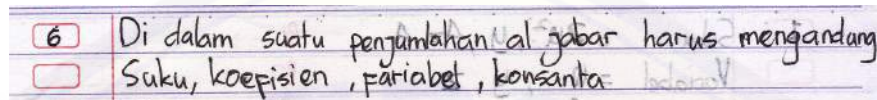 6 Di dalam suatu penjumlahan al jabar harus mengandung
Suku, koepisien , pariabel , konsanta